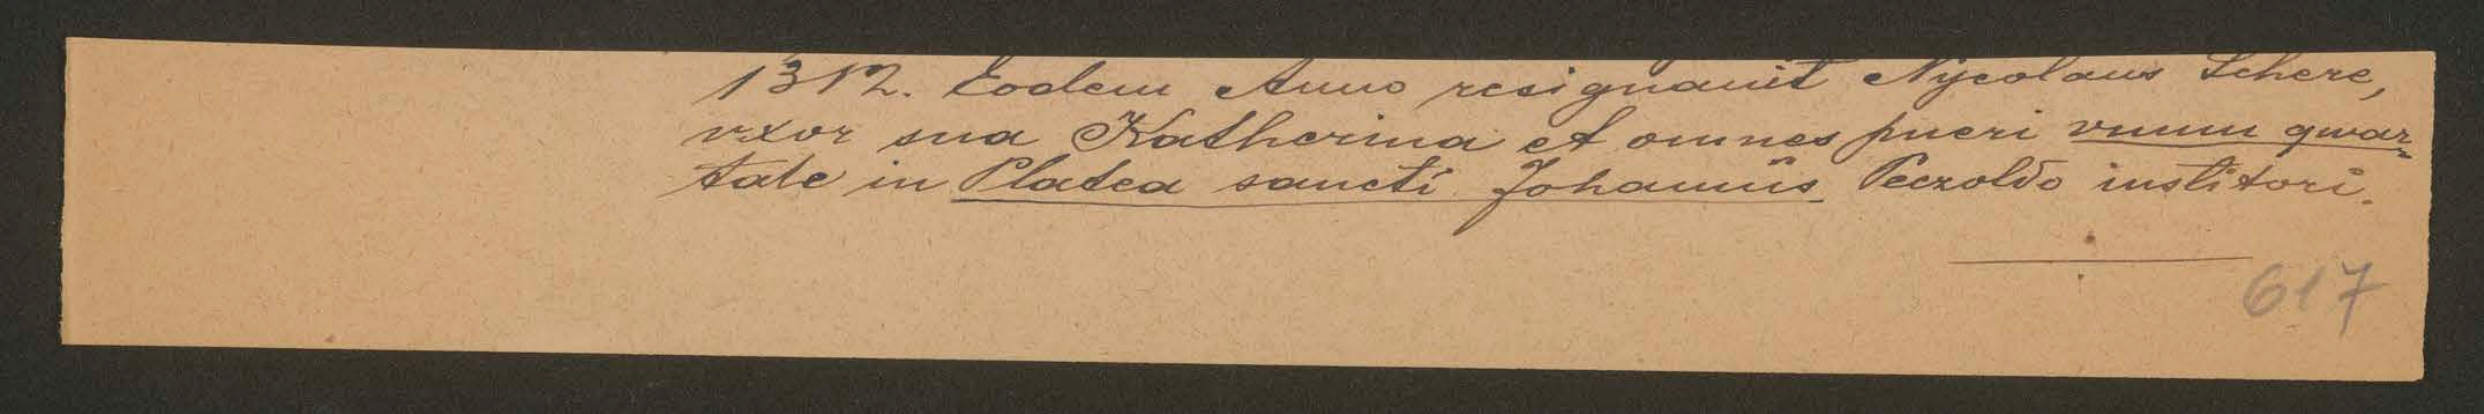 1312. Eodem Anno resignauit Nycolaus Schere,
vxor sua Katherina et omnes pueri vnum quar-
tale in Platea sancti Johannis Peczoldo institori.
617